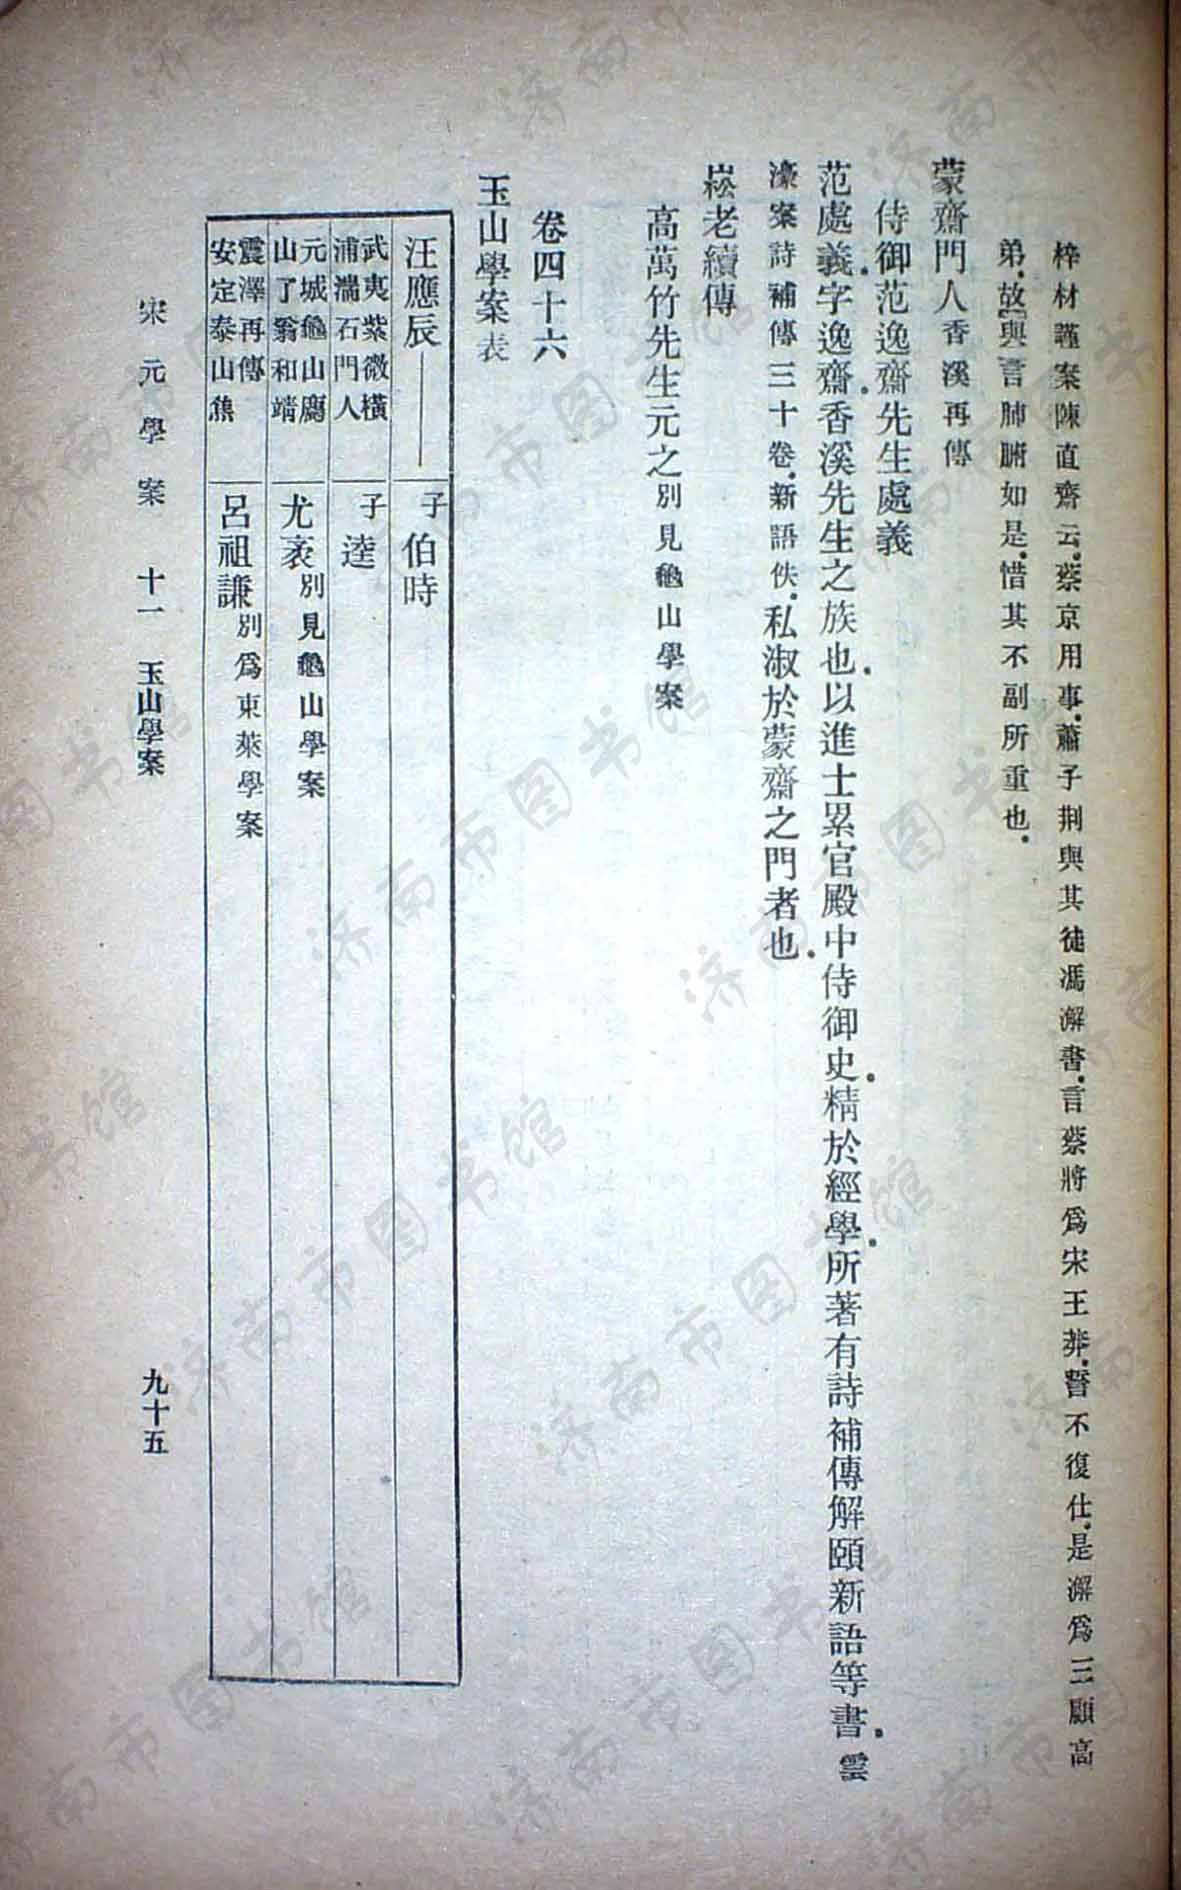 梓材謹案陳直齋云蔡京用事蕭子荆與其徒馮澥書言蔡將爲宋王莽誓不復仕是澥爲三顧高
弟故與言肺腑如是惜其不副所重也
蒙齋門人香溪再傳
侍御范逸齋先生處義
范處義字逸齋香溪先生之族也以進士累官殿中侍御史精於經學所著有詩補傳解頤新語等書雲
濠案詩補傳三十卷新語佚私淑於蒙齋之門者也
崧老續傳
高萬竹先生元之別見龜山學案
卷四十六
玉山學案表
汪應辰——子伯時
武夷紫微橫
浦湍石門人
子逵
元城龜山廌
山了翁和靖
尤袤別見龜山學案
震澤再傳
安定泰山焦
呂祖謙別爲東萊學案
宋元學案 十一 玉山學案 九十五
济南市图书馆